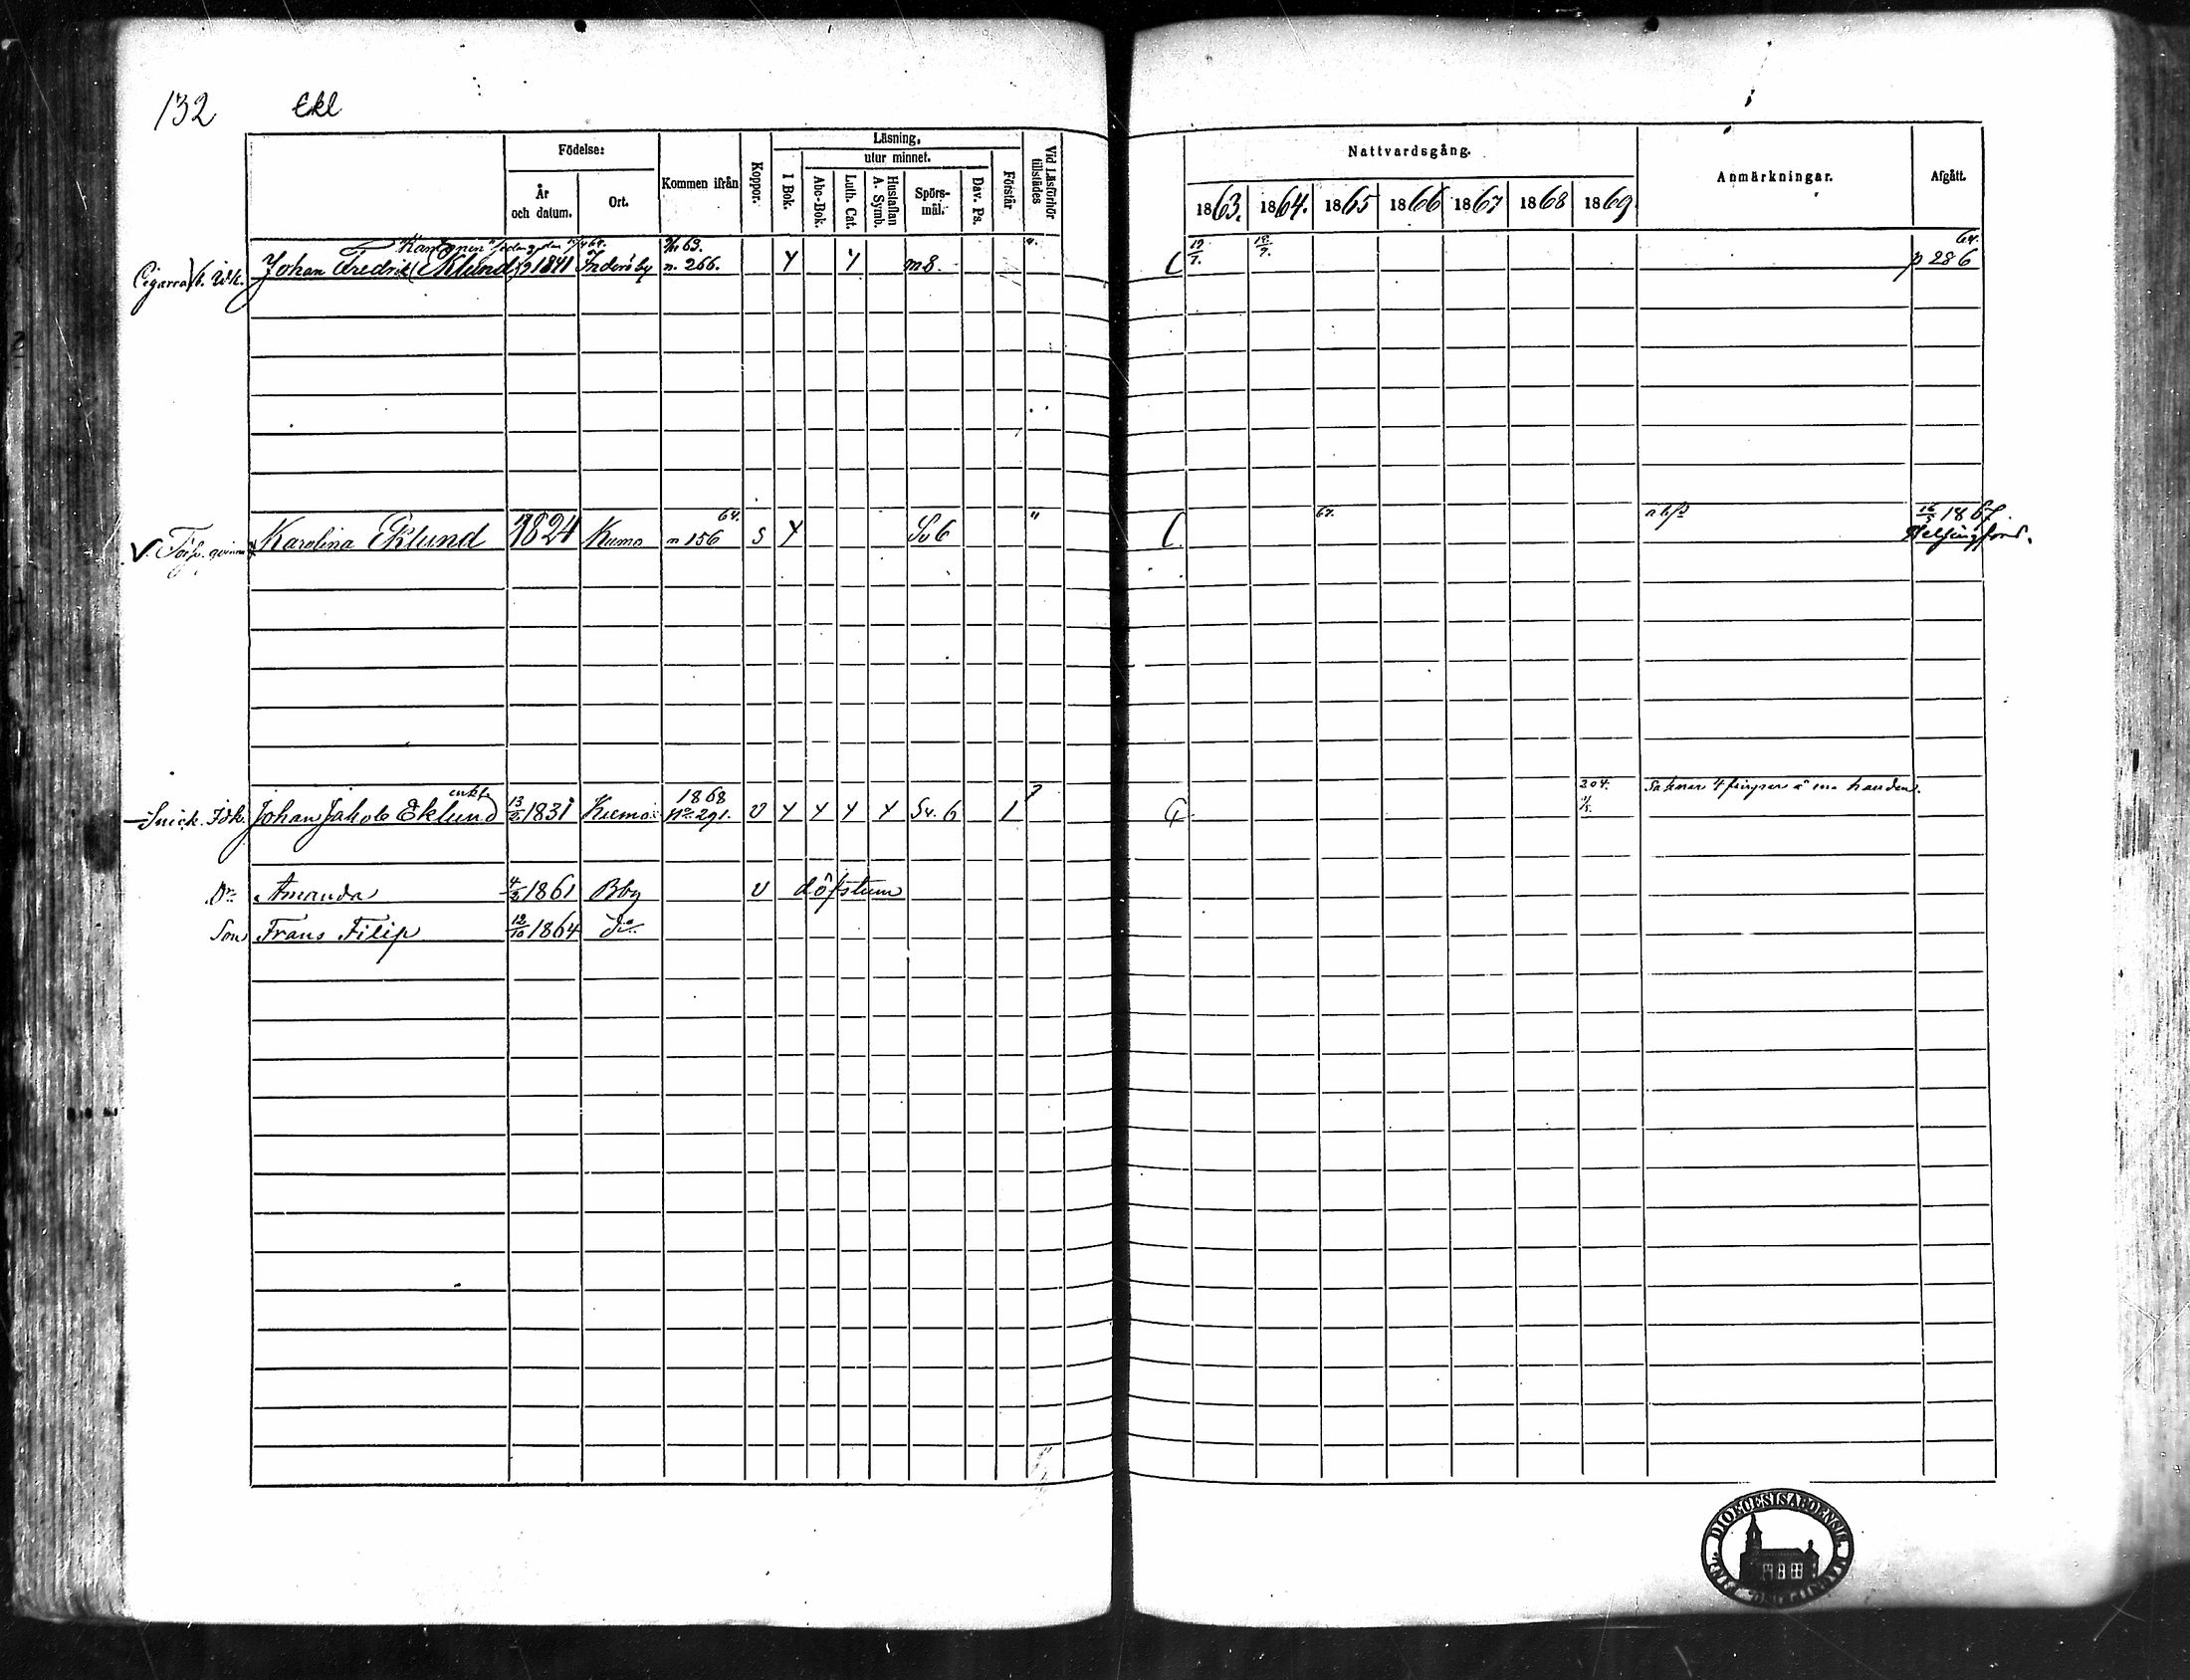 132 Ekl
Födelse: År och datum. Ort. Kommen ifrån Koppor. Läsning, I Bok. utur minnet. Abc-Bok. Luth. Cat. Hustaflan A. Symb. Spörs-mål. Dav. Ps. Förstår Vid Läsförhör tillstädes
Nattvardsgång. 1863. 1864. 1865 1866 1867 1868 1869 Anmärkningar. Afgått.
63. 64.
Johan Fredrik (Eklund) 1841 n. 266. Y Y m8. p 286
64. " 67. 16/5 1867
Karolina Eklund 1824 Kumo n 156 S Y Sv 6 Helsingfors.
1868 204. Saknar 4 fingrar å handen.
Snick. Idk. Johan Jakob Eklund 13/2 1831 Kumo No 291. V Y Y Y Y Sv. 6 1
Dr. Amanda 4/3 1861 Bbg V döfstum
Son Frans Filip 12/10 1864 do
DIOECESIS ABOENSIS